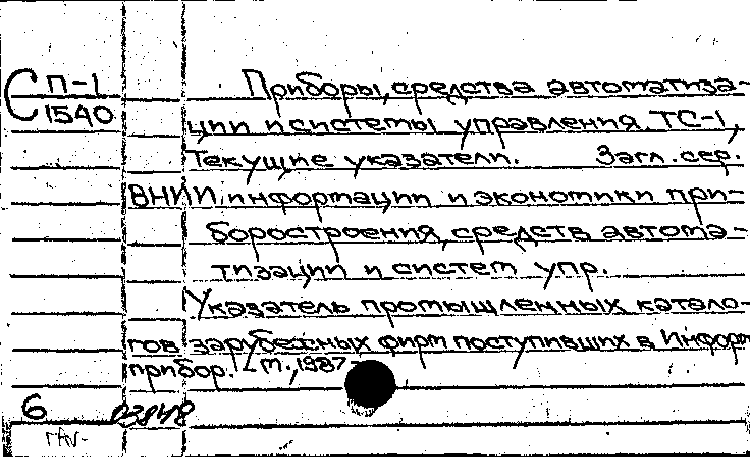 С П-1 Приборы, средства автоматиза-
1540 ции и системы управления. ТС-1,
Текущие указатели. Загл. сер.
ВНИИ информации и экономики при-
боростроения, средств автома-
тизации и систем упр.
Указатель промышленных катало-
гов зарубежных фирм поступивших в Информ
прибор. М., 1987-
6 03848